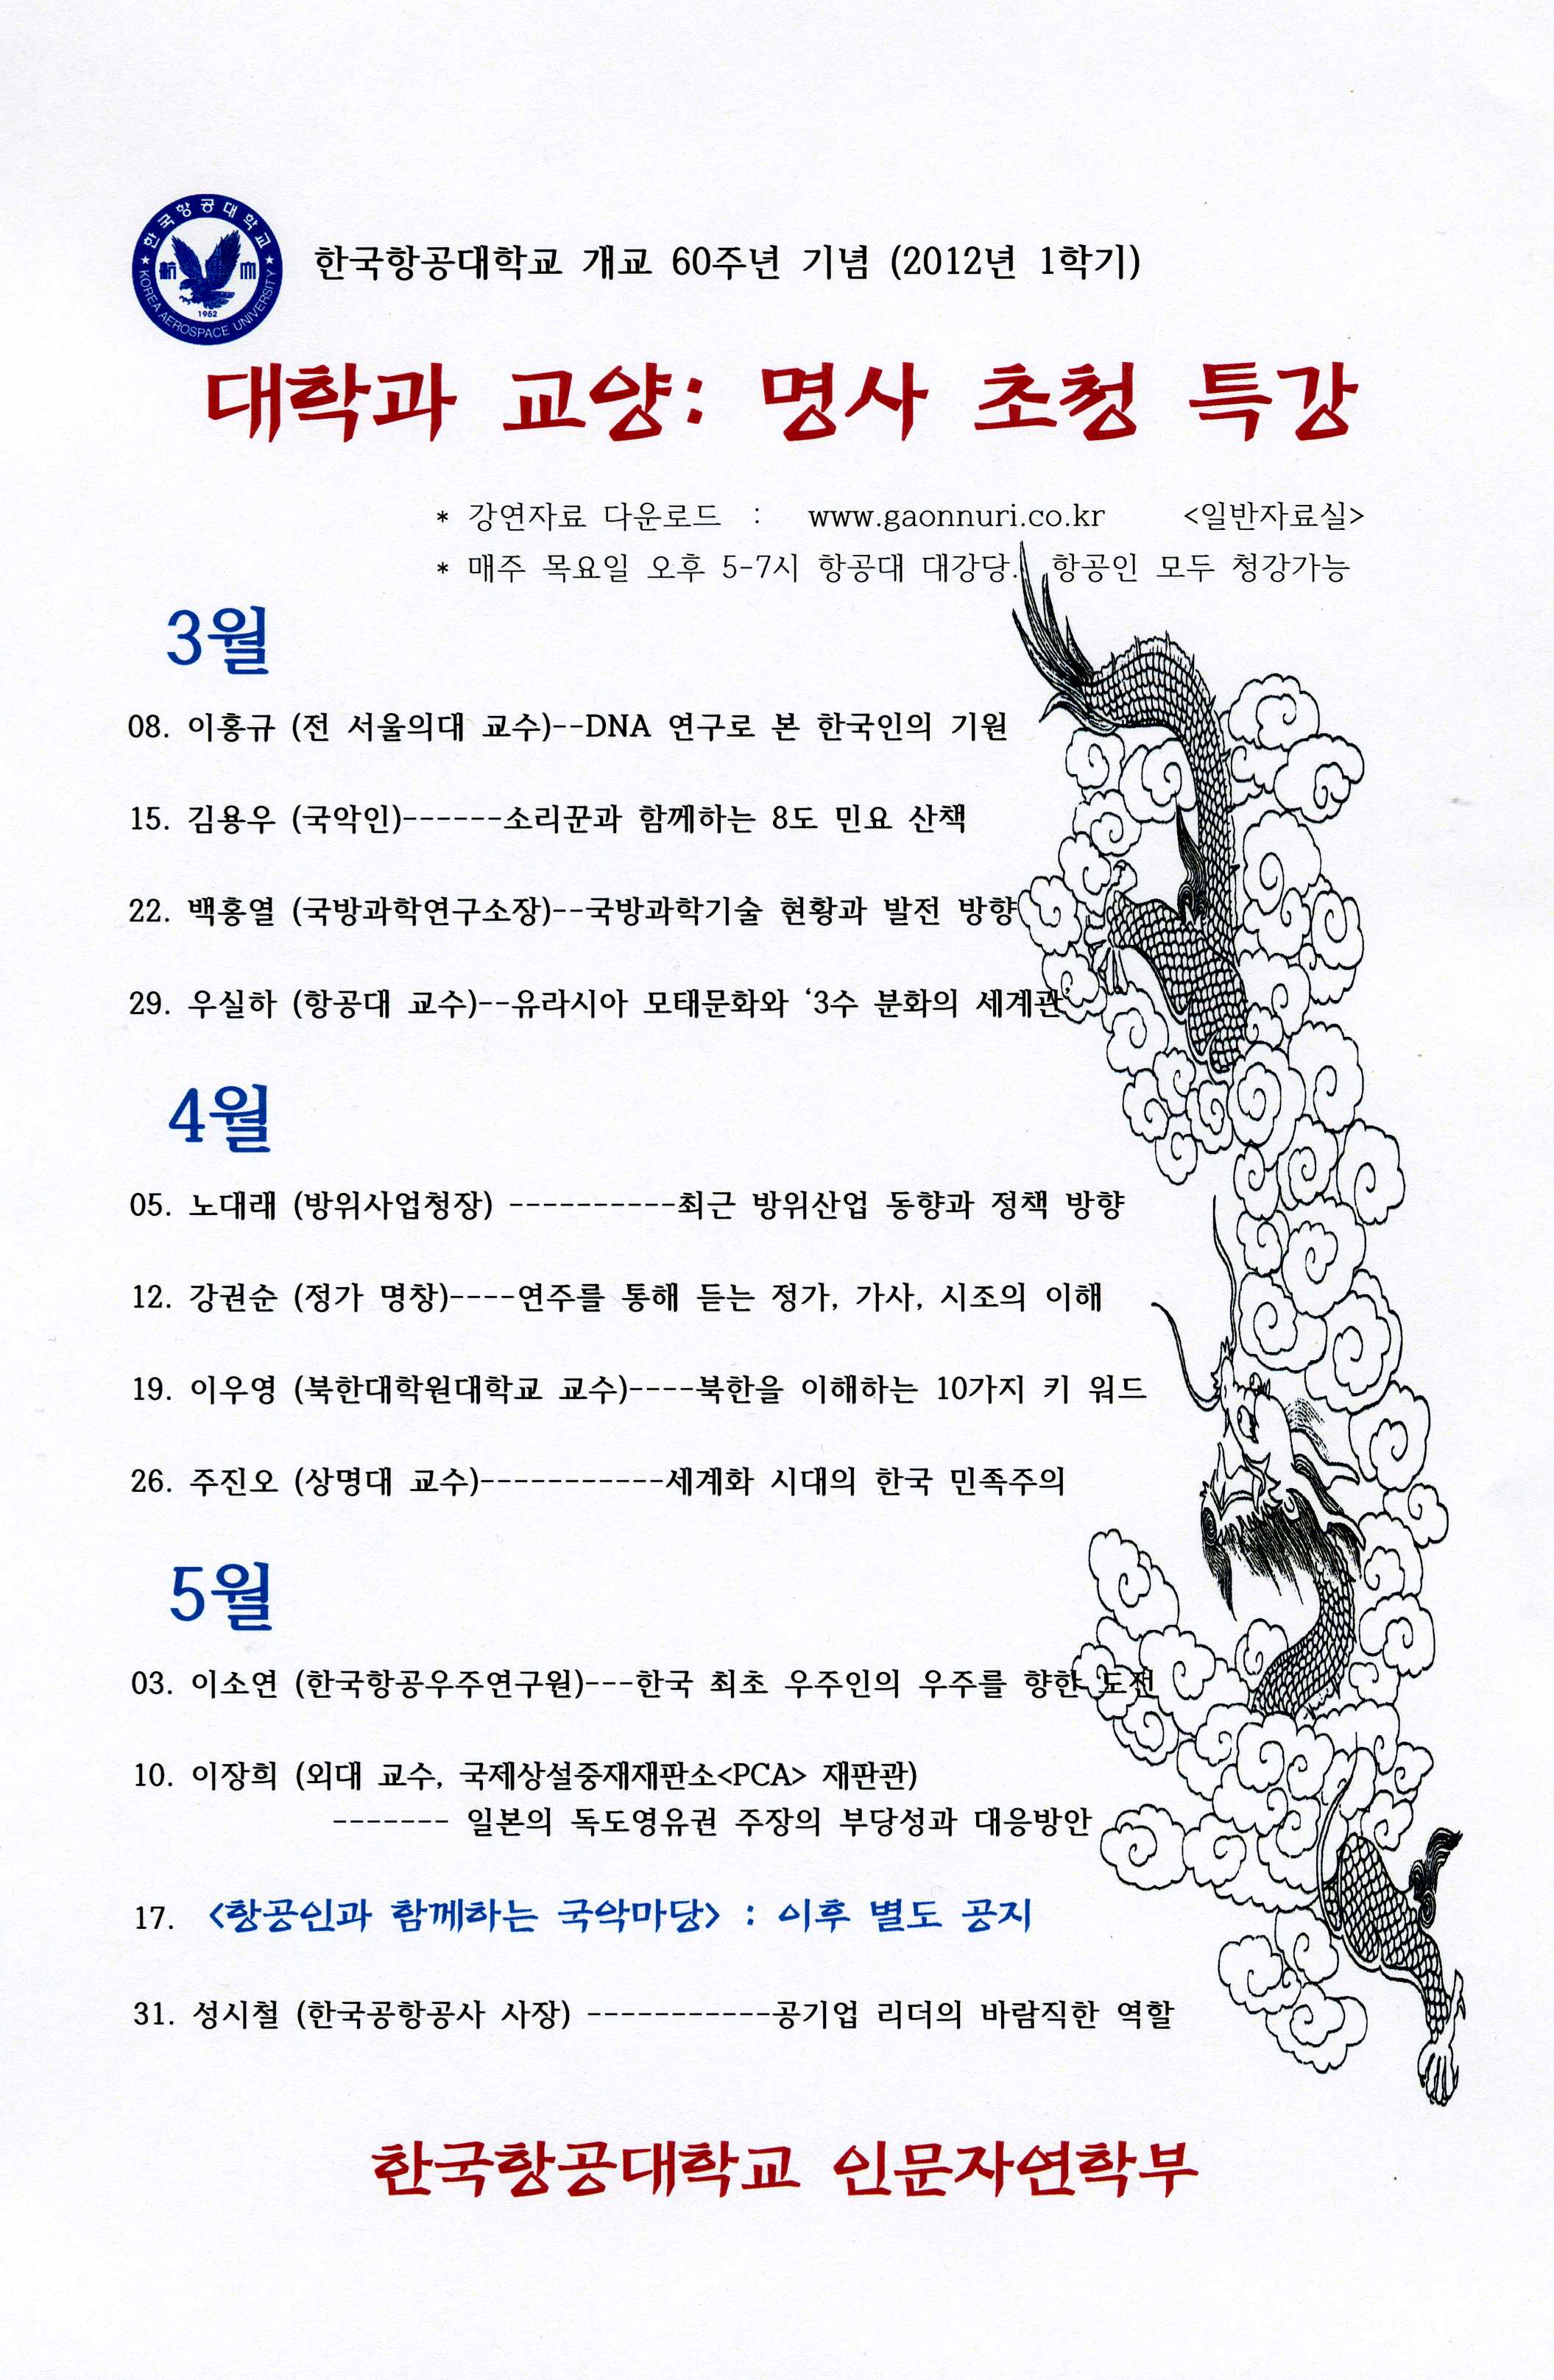 한국항공대학교
航 空
1952
KOREA AEROSPACE UNIVERSITY
한국항공대학교 개교 60주년 기념 (2012년 1학기)
대학과 교양: 명사 초청 특강
* 강연자료 다운로드 : www.gaonnuri.co.kr <일반자료실>
* 매주 목요일 오후 5-7시 항공대 대강당. 항공인 모두 청강가능
3월
08. 이홍규 (전 서울의대 교수)--DNA 연구로 본 한국인의 기원
15. 김용우 (국악인)------소리꾼과 함께하는 8도 민요 산책
22. 백홍열 (국방과학연구소장)--국방과학기술 현황과 발전 방향
29. 우실하 (항공대 교수)--유라시아 모태문화와 ‘3수 분화의 세계관’
4월
05. 노대래 (방위사업청장) ----------최근 방위산업 동향과 정책 방향
12. 강권순 (정가 명창)----연주를 통해 듣는 정가, 가사, 시조의 이해
19. 이우영 (북한대학원대학교 교수)----북한을 이해하는 10가지 키 워드
26. 주진오 (상명대 교수)-----------세계화 시대의 한국 민족주의
5월
03. 이소연 (한국항공우주연구원)---한국 최초 우주인의 우주를 향한 도전
10. 이장희 (외대 교수, 국제상설중재재판소<PCA> 재판관)
------- 일본의 독도영유권 주장의 부당성과 대응방안
17. <항공인과 함께하는 국악마당> : 이후 별도 공지
31. 성시철 (한국공항공사 사장) -----------공기업 리더의 바람직한 역할
한국항공대학교 인문자연학부